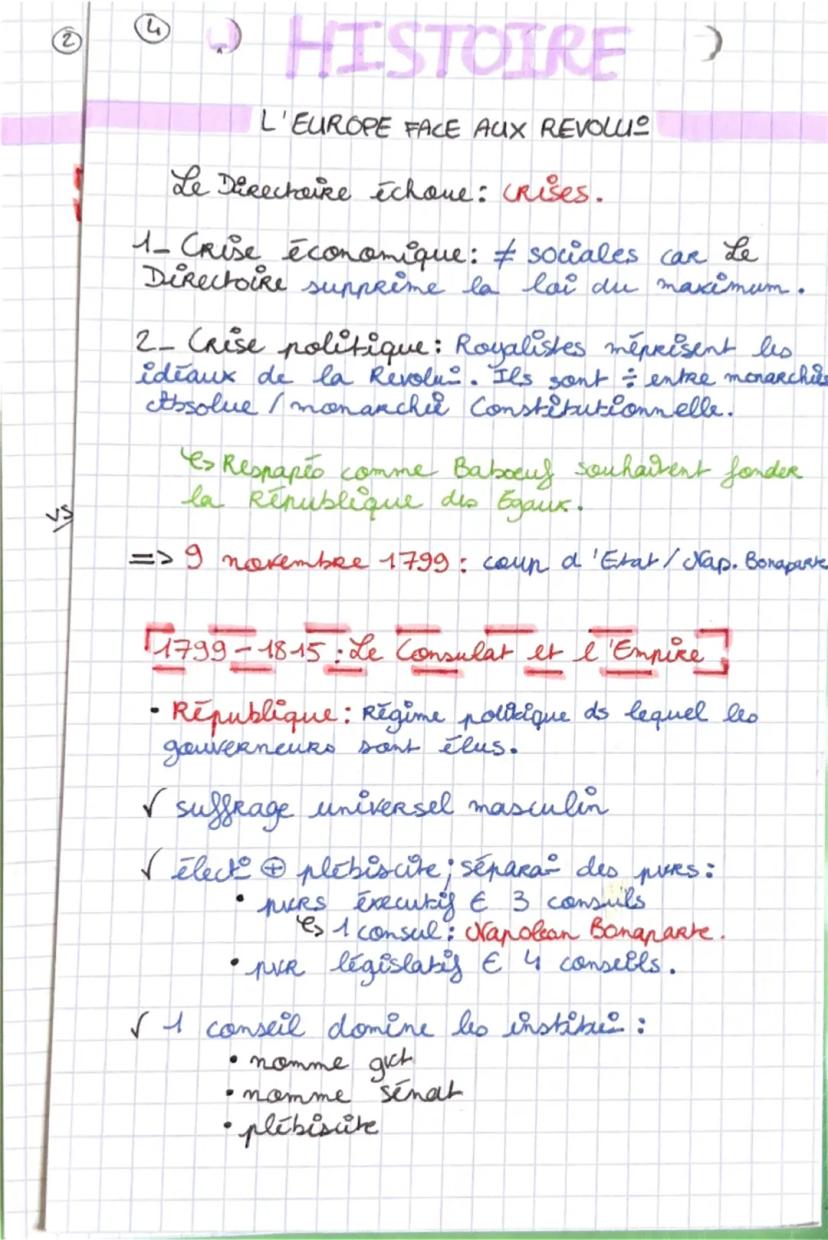 2
4
HISTOIRE
L'EUROPE FACE AUX REVOLU°
Le Directoire échoue : CRises.
1_ CRise économique : ≠ sociales car Le
Directoire supprime la loi du maximum.
2_ Crise politique : Royalistes méprisent les
idéaux de la Révolu°. Ils sont ÷ entre monarchie
Absolue / monarchie Constitutionnelle.
↳ comme Baboeuf souhaitent fonder
la République des Egaux.
vs
=> 9 novembre 1799 : coup d'Etat / Nap. Bonaparte
1799 – 1815 : Le Consulat et l'Empire
• République : Régime politique ds lequel les
gouverneurs sont élus.
√ suffrage universel masculin
√ élect° ⊕ plébiscite ; sépara° des pvrs :
• pvrs éxecutif € 3 consuls
↳ 1 consul : Napoléan Bonaparte.
• pvr législatif € 4 conseils.
√ 1 conseil domine les institu° :
• nomme gvt
• nomme sénat
• plébiscite